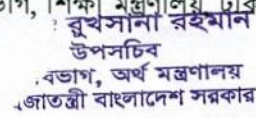 শিক্ষা মন্ত্রণালয়
: রুখসানা রহমান
উপসচিব
বিভাগ, অর্থ মন্ত্রণালয়
জাতন্ত্রী বাংলাদেশ সরকার